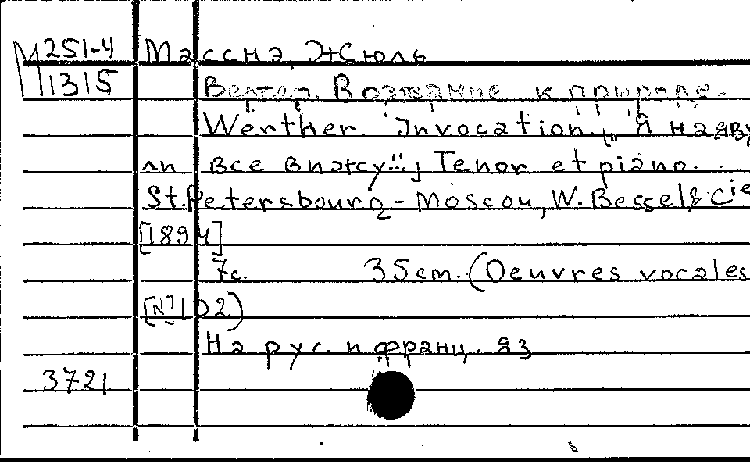 М251-4 Массна, Жюль
1315 Вертер. Воззвание к природе.
Werther. Invocation „Я наяву
ли все вижу"; Tenor et piano.
St.Petersbourg-Moscou, W. Bessel & Cie
[1894]
7с. 35cm. (Oeuvres vocales
[N°102)
На рус. и франц. яз
3721